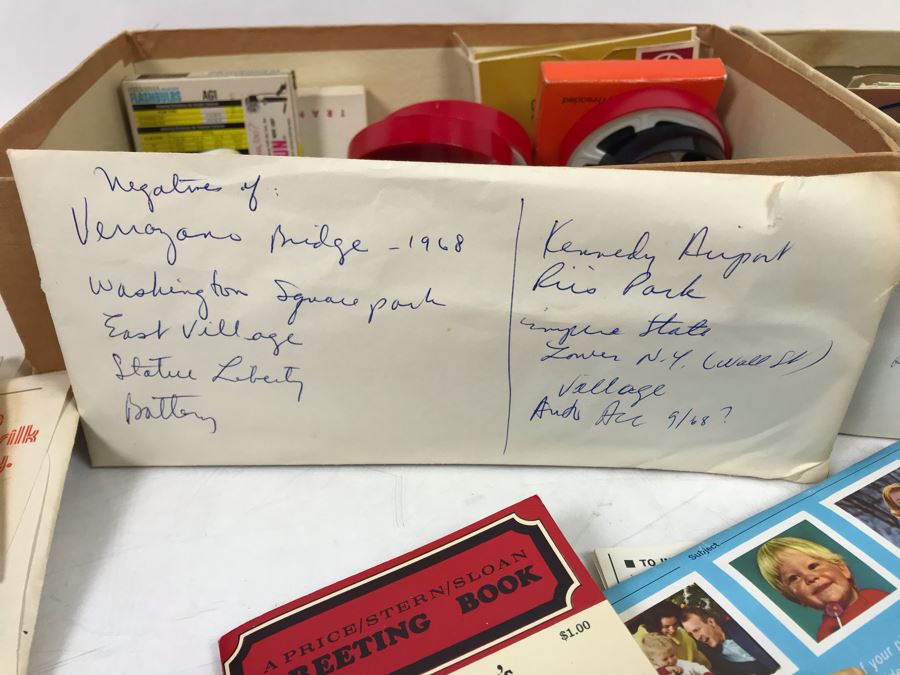 FLASHBULBS
AG1
Threaded
Negatives of:
Verrazano Bridge - 1968
Washington Square park
East Village
Statue Liberty
Battery
Kennedy Airport
Riis Park
Empire State
Lower N.Y. (Wall St)
Village
9/68?
A PRICE/STERN/SLOAN
GREETING BOOK
$1.00
Subject
TO
your